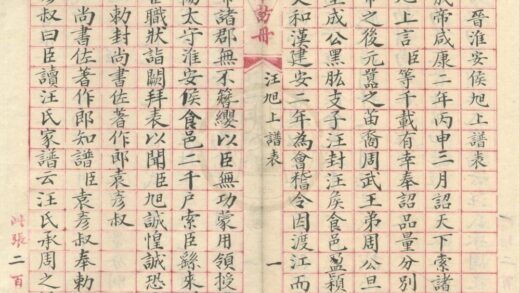 晉淮安侯旭上譜表
成帝咸康二年丙申三月詔天下索諸
旭上言臣等千載有幸奉詔品量分别
帝之後元囂之苗裔周武王弟周公旦
至成公黑肱支子汪封汪侯食邑盈穎
文和漢建安二年為會稽令因渡江而
訪冊
汪旭上譜表 一
帝諸郡無不簪纓以臣無功蒙用領授
陽太守淮安侯食邑二千户索臣繇來
在職狀詣闕拜表以聞臣旭誠惶誠恐
勅封尚書佐著作郎袁彥叔
尚書佐著作郎知譜臣袁彥叔奉勅
彥叔曰臣讀汪氏家譜云汪氏承周之
此張二百